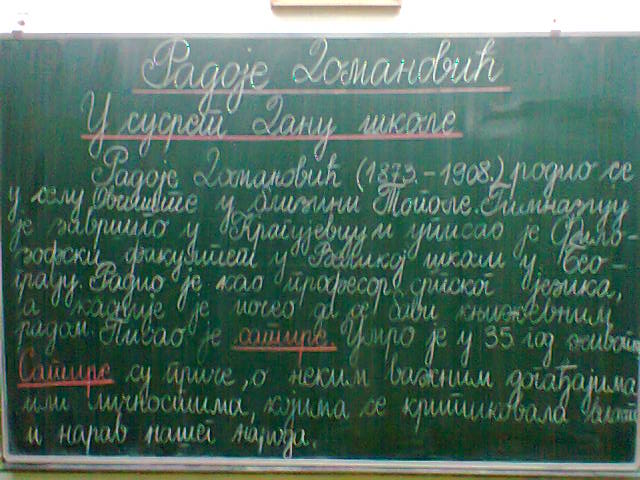 Радоје Домановић
У сусрет Дану школе
Радоје Домановић (1873.-1908.) родио се
у селу Овсиште у близини Тополе. Гимназију
је завршио у Крагујевцу и уписао је Фило-
зофски факултет у Великој школи у Бео-
граду. Радио је као професор српског језика,
а касније је почео да се бави књижевним
радом. Писао је сатире. Умро је у 35 год. живота.
Сатире су приче, о неким важним догађајима
или личностима, којима се критиковала власт
и нарав нашег народа.